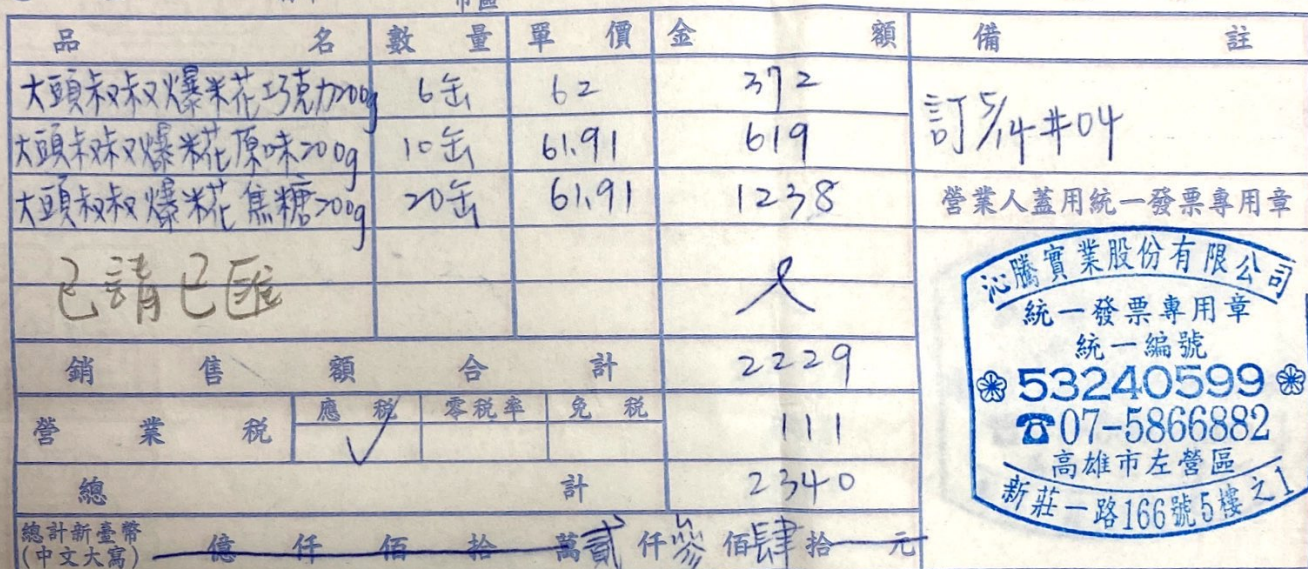 品名 數量 單價 金額 備註
大頭叔叔爆米花巧克力200g 6缶 62 372
訂5/14#04
大頭叔叔爆米花原味200g 10缶 61.91 619
大頭叔叔爆米花焦糖200g 20缶 61.91 1238
營業人蓋用統一發票專用章
已請已匯
銷售額合計 2229
營業稅 應稅 零稅率 免稅 111
總計 2340
總計新臺幣
(中文大寫) 億仟佰拾萬貳仟參佰肆拾元
沁騰實業股份有限公司
統一發票專用章
統一編號
53240599
☎07-5866882
高雄市左營區
新莊一路166號5樓之1